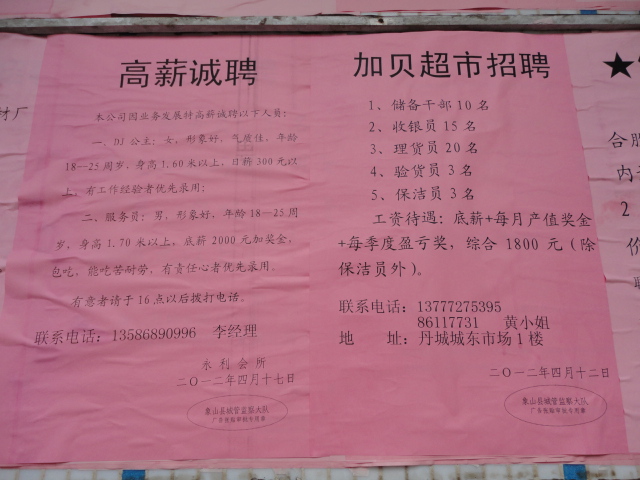 高薪诚聘
本公司因业务发展特高薪诚聘以下人员：
一、DJ 公主：女，形象好，气质佳，年龄
18—25 周岁，身高 1.60 米以上，日薪 300 元以
上，有工作经验者优先录用；
二、服务员：男，形象好，年龄 18—25 周
岁，身高 1.70 米以上，底薪 2000 元加奖金，
包吃，能吃苦耐劳，有责任心者优先录用。
有意者请于 16 点以后拨打电话。
联系电话：13586890996 李经理
永利会所
二〇一二年四月十七日
象山县城管监察大队
广告张贴审批专用章
加贝超市招聘
1、储备干部 10 名
2、收银员 15 名
3、理货员 20 名
4、验货员 3 名
5、保洁员 3 名
工资待遇：底薪+每月产值奖金
+每季度盈亏奖，综合 1800 元（除
保洁员外）。
联系电话：13777275395
86117731 黄小姐
地 址：丹城城东市场 1 楼
二〇一二年四月十二日
象山县城管监察大队
广告张贴审批专用章
材厂
★
合肥
内
2
价